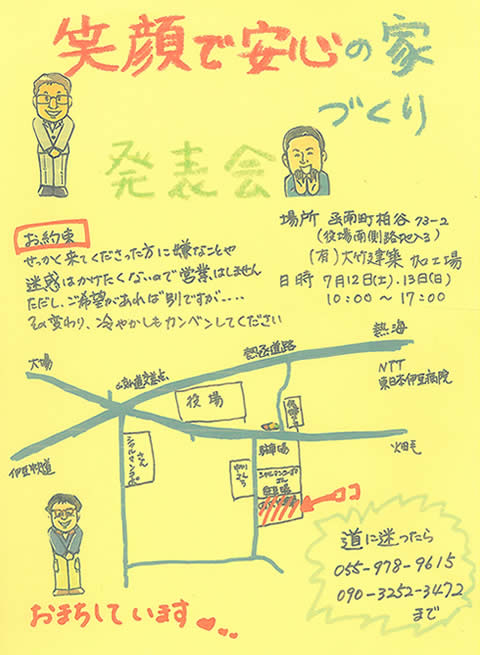 笑顔で安心の家
づくり
発表会
お約束
せっかく来てくださった方に嫌なことや
迷惑はかけたくないので営業はしません
ただし、ご希望があれば別ですが....
その変わり、冷やかしもカンベンしてください
場所 函南町柏谷73-2
(役場南側路地入る)
(有)大竹建築 加工場
日時 7月12日(土).13日(日)
10:00~17:00
大場
熱函道路
熱海
NTT
東日本伊豆病院
役場
畑毛
伊豆中央道
さん
駐車場
さん
ココ
道に迷ったら
055-978-9615
090-3252-3472
まで
おまちしています